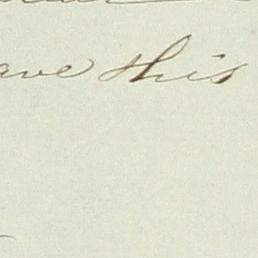 ave this